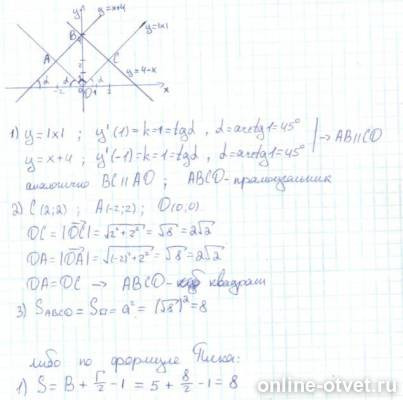 y
y=x+4
y=|x|
B
A
C
y=4-x
α
α
-2
0
1
2
x
1) y=|x| ; y'(1)=k=1=tgα , α=arctg1=45°
→ AB||CD
y=x+4 ; y'(-1)=k=1=tgα , α=arctg1=45°
аналогично BC||AD ; ABCD-прямоугольник
2) C(2;2) ; A(-2;2) ; D(0;0)
DC=|DC|=√2²+2²=√8=2√2
DA=|DA|=√(-2)²+2²=√8=2√2
DA=DC → ABCD- квадрат
3) S ABCD=S□=a²=(√8)²=8
либо по формуле Пика:
1) S=В+Г/2-1=5+8/2-1=8
online-otvet.ru